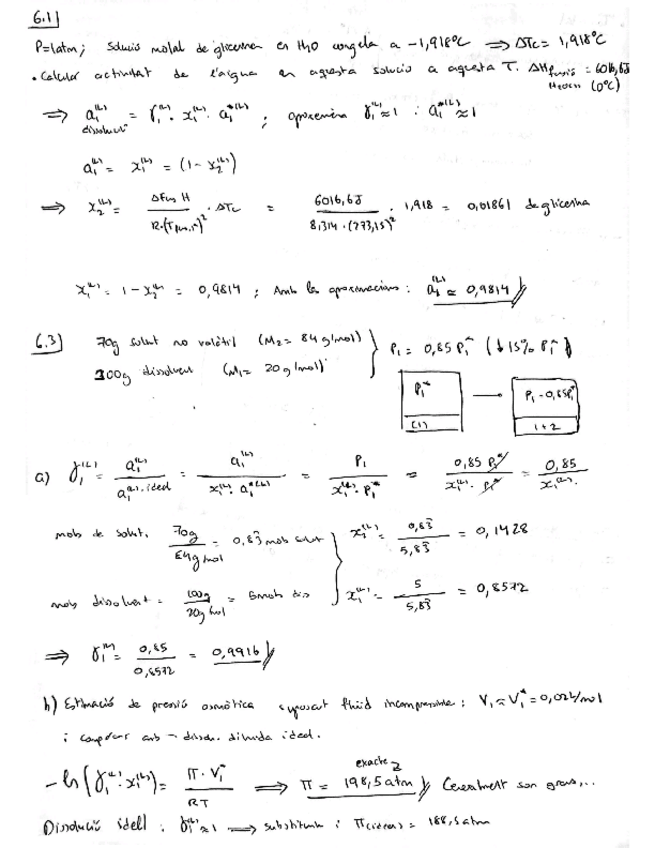 6.1]
P=1atm; Solució molal de glicerina en H2O congela a -1,918ºC ⟹ ΔTc = 1,918ºC
• Calcular activitat de l'aigua en aquesta solució a aquesta T. ΔHfusió = 6016,6J
(0ºC)
⟹ a₁⁽ᴸ⁾ = γ₁⁽ᴸ⁾ · x₁⁽ᴸ⁾ · a₁*⁽ᴸ⁾ ; γ₁⁽ᴸ⁾ ≈ 1 : a₁*⁽ᴸ⁾ ≈ 1
dissolvent
a₁⁽ᴸ⁾ = x₁⁽ᴸ⁾ = (1 - x₂⁽ᴸ⁾)
⟹ x₂⁽ᴸ⁾ = Δfus H / R·(Tfus,1*)² · ΔTc = 6016,6J / 8,314 · (273,15)² · 1,918 = 0,01861 de glicerina
x₁⁽ᴸ⁾ = 1 - x₂⁽ᴸ⁾ = 0,9814 ; Amb les aproximacions : a₁⁽ᴸ⁾ ≈ 0,9814
6.3] 70g solut no volàtil (M₂ = 84 g/mol) } P₁ = 0,85 P₁* (↓15% P₁*)
300g dissolvent (M₁ = 20 g/mol)
P₁* → P₁ = 0,85P₁*
(1) 1+2
a) γ₁⁽ᴸ⁾ = a₁⁽ᴸ⁾ / a₁⁽ᴸ⁾,ideal = a₁⁽ᴸ⁾ / x₁⁽ᴸ⁾ · a₁*⁽ᴸ⁾ = P₁ / x₁⁽ᴸ⁾ · P₁* = 0,85 P₁* / x₁⁽ᴸ⁾ · P₁* = 0,85 / x₁⁽ᴸ⁾
mols de solut. 70g / 84g/mol = 0,83 mols solut } x₂⁽ᴸ⁾ = 0,83 / 5,83 = 0,1428
mols dissolvent = 100g / 20g/mol = 5mols dis x₁⁽ᴸ⁾ = 5 / 5,83 = 0,8572
⟹ γ₁⁽ᴸ⁾ = 0,85 / 0,8572 = 0,9916
b) Estimació de pressió osmòtica suposant fluid incompressible : V₁ ≈ V₁* = 0,02L/mol
i comparar amb dissol. diluida ideal.
-ln(γ₁⁽ᴸ⁾ · x₁⁽ᴸ⁾) = π · V₁* / RT ⟹ π = 198,5 atm Generalment son grans,...
exacte
Dissolució ideal : γ₁⁽ᴸ⁾ ≈ 1 ⟹ substituint : π(ideal) = 188,5 atm